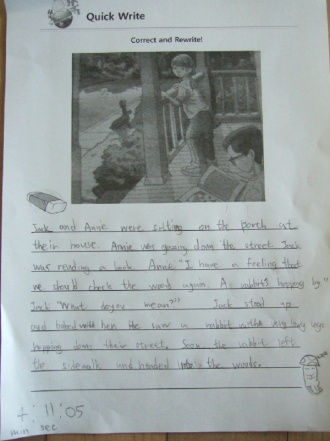 Quick Write
Correct and Rewrite!
Jack and Annie were sitting on the porch at
their house. Annie was gazing down the street Jack
was reading a book. Annie "I have a feeling that
we should check the woods again. A rabbit's hopping by."
Jack "What does mean"? Jack stood up
and looked with her. He saw a rabbit with very long legs
hopping down their street. Soon the rabbit left
the sidewalk and headed into the woods.
+: 11:05
min sec